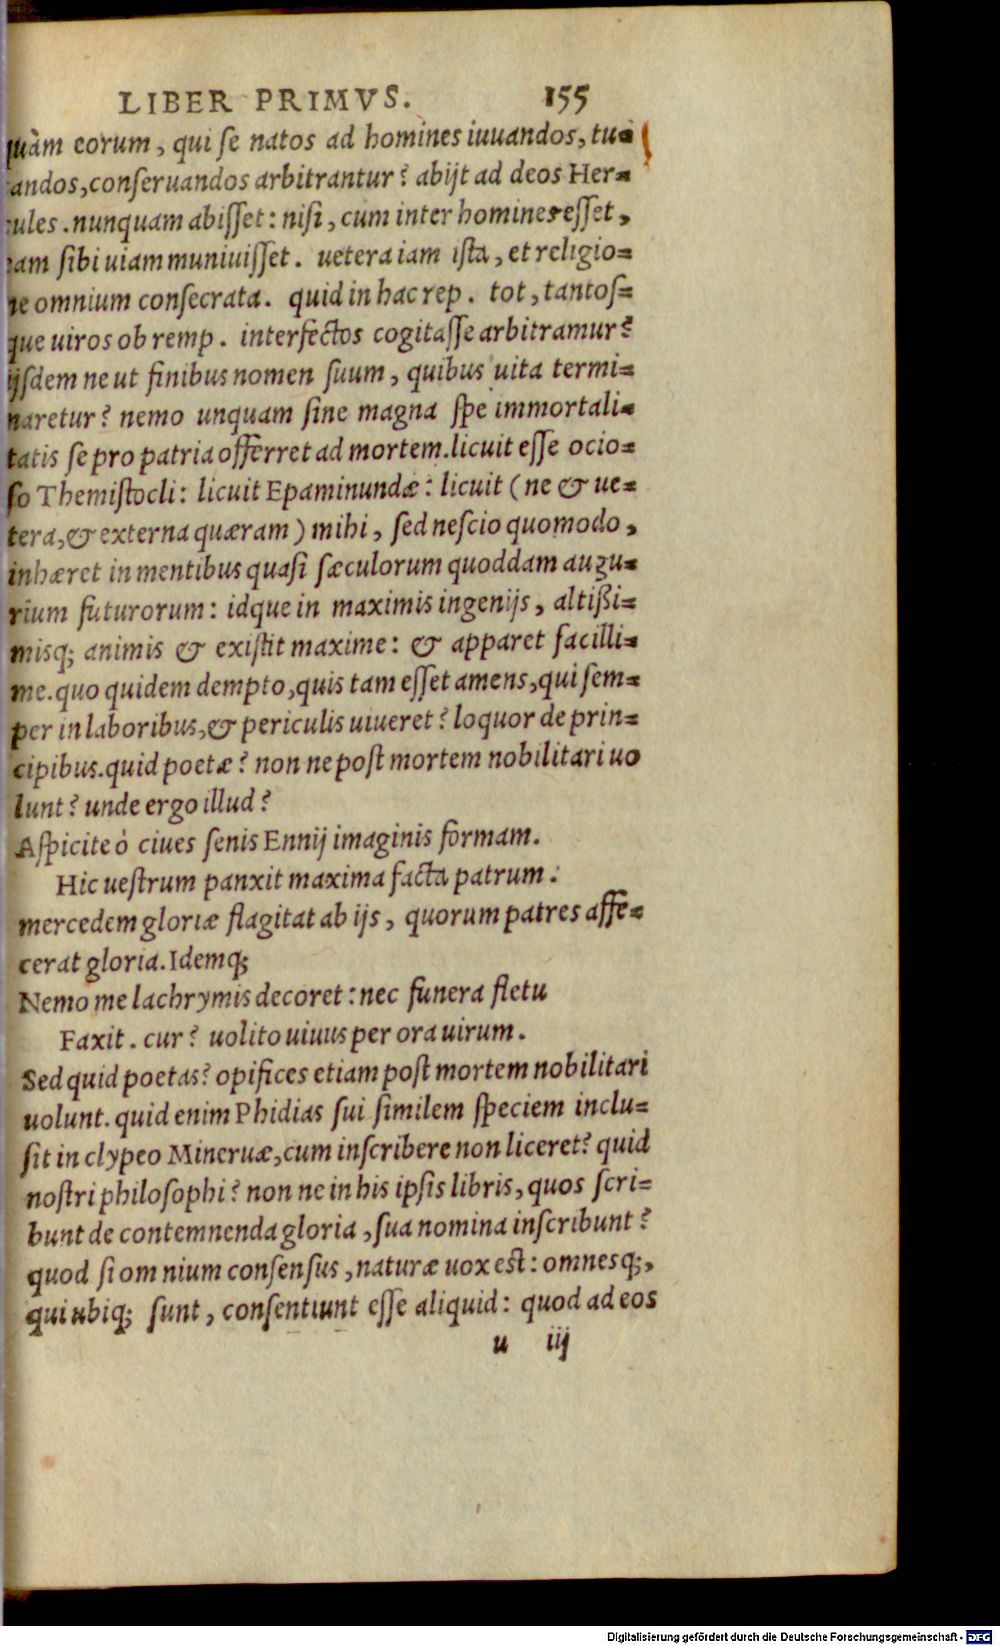 LIBER PRIMVS. 155
quàm eorum, qui se natos ad homines iuuandos, tu=
andos, conseruandos arbitrantur? abijt ad deos Her=
cules. nunquam abisset: nisi, cum inter homines esset,
eam sibi uiam muniuisset. uetera iam ista, et religio=
ne omnium consecrata. quid in hac rep. tot, tantos=
que uiros ob remp. interfectos cogitasse arbitramur?
ijsdem ne ut finibus nomen suum, quibus uita termi=
naretur? nemo unquam sine magna spe immortali=
tatis se pro patria offerret ad mortem. licuit esse ocio=
so Themistocli: licuit Epaminundæ: licuit (ne & ue=
tera, & externa quæram) mihi, sed nescio quomodo,
inhæret in mentibus quasi sæculorum quoddam augu=
rium futurorum: idque in maximis ingenijs, altißi=
misq; animis & existit maxime: & apparet facilli=
me. quo quidem dempto, quis tam esset amens, qui sem=
per in laboribus, & periculis uiueret? loquor de prin=
cipibus. quid poetæ? non ne post mortem nobilitari uo
lunt? unde ergo illud?
Aspicite ò ciues senis Ennij imaginis formam.
Hic uestrum panxit maxima facta patrum:
mercedem gloriæ flagitat ab ijs, quorum patres affe=
cerat gloria. Idemq;
Nemo me lachrymis decoret: nec funera fletu
Faxit. cur? uolito uiuus per ora uirum.
Sed quid poetas? opifices etiam post mortem nobilitari
uolunt. quid enim Phidias sui similem speciem inclu=
sit in clypeo Mineruæ, cum inscribere non liceret? quid
nostri philosophi? non ne in his ipsis libris, quos scri=
bunt de contemnenda gloria, sua nomina inscribunt?
quod si omnium consensus, naturæ uox est: omnesq;,
qui ubiq; sunt, consentiunt esse aliquid: quod ad eos
u iij
Digitalisierung gefördert durch die Deutsche Forschungsgemeinschaft - DFG